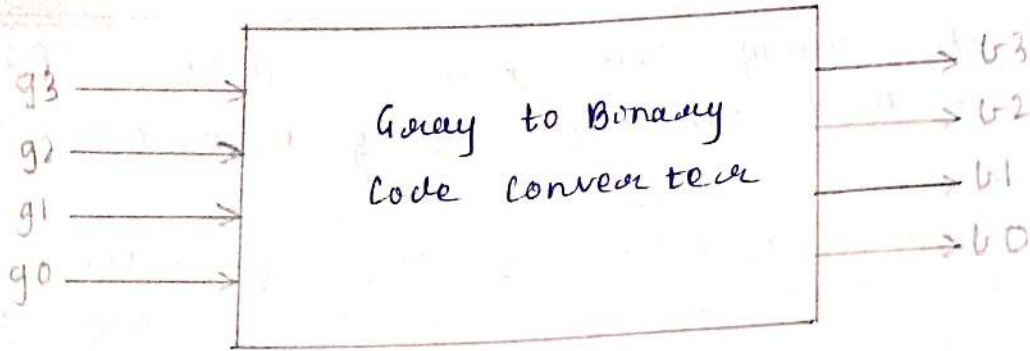 g3
g2
g1
g0
Gray to Binary
Code Converter
b3
b2
b1
b0